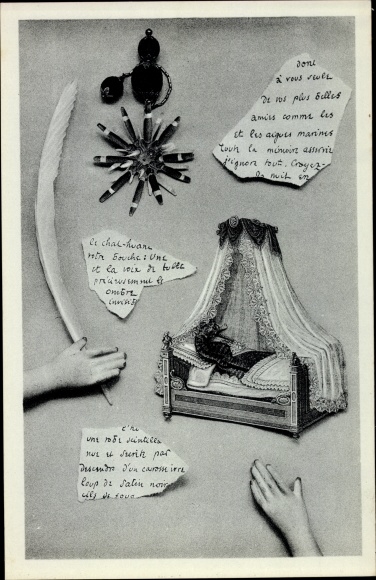 donc
à vous seule
De vos plus belles
amies comme les
et les aigues marines
Toute la mémoire asservie
J'ignore tout. Croyez-
la nuit en
Le chat-huant
votre bouche : Une
et la voix de tulle
précieusement le
ombre
invisib
Une robe scintille
nue et
descendre d'un carosse ivre
loup de Satin noir
cils de